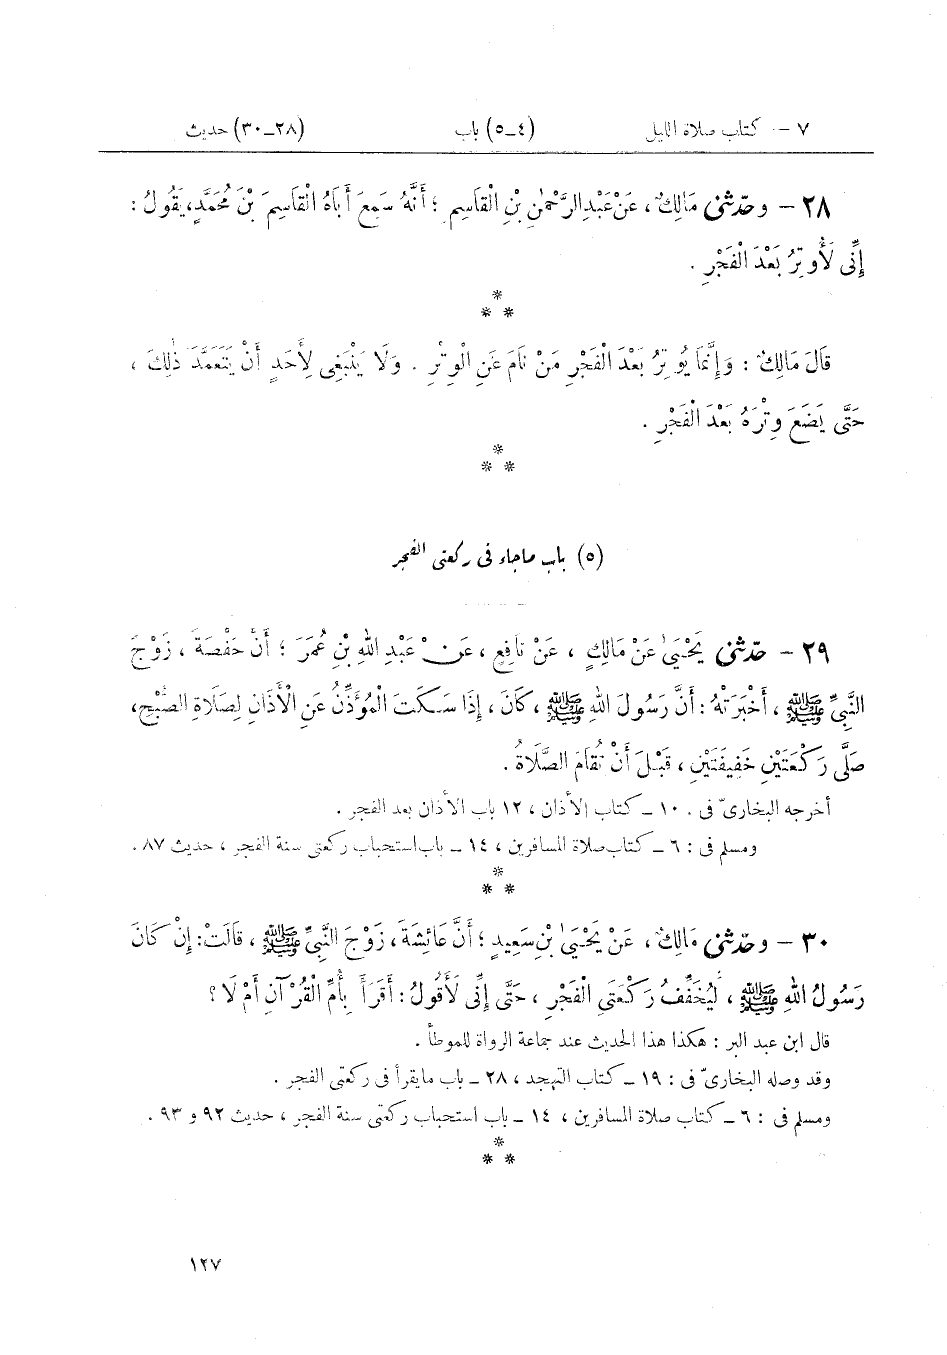 ٧ - كتاب صلاة الليل (٤-٥) باب (٢٨-٣٠) حديث
٢٨ - وحدّثنى مَالِكٌ، عَنْ عَبْدِ الرَّحْمٰنِ بْنِ الْقَاسِمِ؛ أَنَّهُ سَمِعَ أَبَاهُ الْقَاسِمَ بْنَ مُحَمَّدٍ، يَقُولُ:
إِنِّى لَأُوتِرُ بَعْدَ الْفَجْرِ.
*
* *
قَالَ مَالِكٌ: وَإِنَّمَا يُوتِرُ بَعْدَ الْفَجْرِ مَنْ نَامَ عَنِ الْوِتْرِ. وَلَا يَنْبَغِى لِأَحَدٍ أَنْ يَتَعَمَّدَ ذٰلِكَ،
حَتَّى يَضَعَ وِتْرَهُ بَعْدَ الْفَجْرِ.
*
* *
(٥) باب ماجاء فى ركعتى الفجر
٢٩ - حدّثنى يَحْيَىٰ عَنْ مَالِكٍ، عَنْ نَافِعٍ، عَنْ عَبْدِ اللهِ بْنِ عُمَرَ؛ أَنَّ حَفْصَةَ، زَوْجَ
النَّبِىِّ ﷺ، أَخْبَرَتْهُ: أَنَّ رَسُولَ اللهِ ﷺ، كَانَ، إِذَا سَكَتَ الْمُؤَذِّنُ عَنِ الْأَذَانِ لِصَلَاةِ الصُّبْحِ،
صَلَّى رَكْعَتَيْنِ خَفِيفَتَيْنِ، قَبْلَ أَنْ تُقَامَ الصَّلَاةُ.
أخرجه البخارىّ فى: ١٠ - كتاب الأذان، ١٢ باب الأذان بعد الفجر.
ومسلم فى: ٦ - كتاب صلاة المسافرين، ١٤ - باب استحباب ركعتى سنة الفجر، حديث ٨٧.
*
* *
٣٠ - وحدّثنى مَالِكٌ، عَنْ يَحْيَىٰ بْنِ سَعِيدٍ؛ أَنَّ عَائِشَةَ، زَوْجَ النَّبِىِّ ﷺ، قَالَتْ: إِنْ كَانَ
رَسُولُ اللهِ ﷺ، لَيُخَفِّفُ رَكْعَتَىِ الْفَجْرِ، حَتَّى إِنِّى لَأَقُولُ: أَقَرَأَ بِأُمِّ الْقُرْآنِ أَمْ لَا؟
قال ابن عبد البر: هكذا هذا الحديث عند جماعة الرواة للموطأ.
وقد وصله البخارىّ فى: ١٩ - كتاب التهجد، ٢٨ - باب ما يقرأ فى ركعتى الفجر.
ومسلم فى: ٦ - كتاب صلاة المسافرين، ١٤ - باب استحباب ركعتى سنة الفجر، حديث ٩٢ و ٩٣.
*
* *
١٢٧